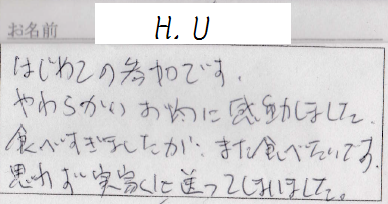 お名前 H. U
はじめての参加です。
やわらかい お肉に 感動しました。
食べすぎましたが、また食べたいです。
思わず 実家に送ってしまいました。